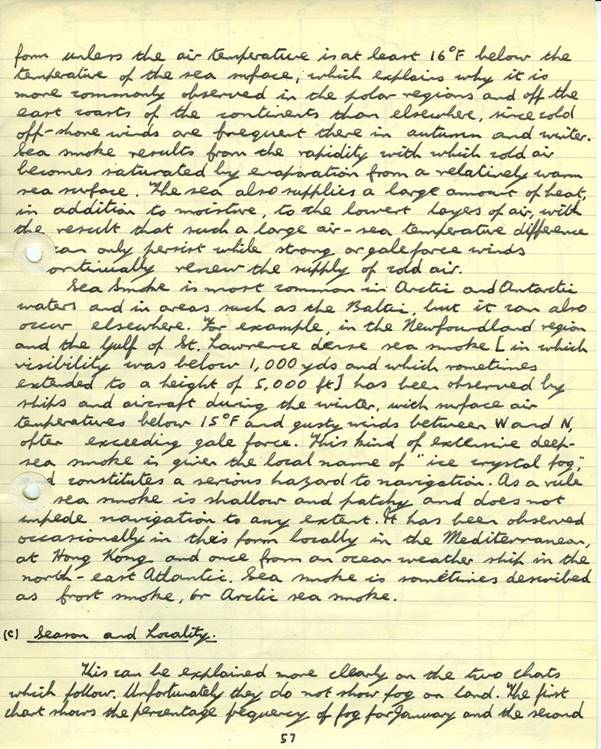 form unless the air temperature is at least 16°F below the
temperature of the sea surface, which explains why it is
more commonly observed in the polar regions and off the
east coasts of the continents than elsewhere, since cold
off-shore winds are frequent there in autumn and winter.
Sea smoke results from the rapidity with which cold air
becomes saturated by evaporation from a relatively warm
sea surface. The sea also supplies a large amount of heat,
in addition to moisture, to the lowest layers of air, with
the result that such a large air-sea temperature difference
can only persist while strong or gale force winds
ontinually renew the supply of cold air.
Sea Smoke is most common in Arctic and Antarctic
waters and in areas such as the Baltic, but it can also
occur elsewhere. For example, in the Newfoundland region
and the Gulf of St. Lawrence dense sea smoke [in which
visibility was below 1,000 yds and which sometimes
extended to a height of 5,000 ft] has been observed by
ships and aircraft during the winter, with surface air
temperatures below 15°F and gusty winds between W and N,
often exceeding gale force. This kind of extensive deep-
sea smoke is given the local name of "ice crystal fog",
d constitutes a serious hazard to navigation. As a rule
sea smoke is shallow and patchy and does not
impede navigation to any extent. It has been observed
occasionally in this form locally in the Mediterranean,
at Hong Kong and once from an ocean weather ship in the
north-east Atlantic. Sea smoke is sometimes described
as frost smoke, or Arctic sea smoke.
(c) Season and Locality.
This can be explained more clearly on the two charts
which follow. Unfortunately they do not show fog on land. The first
chart shows the percentage frequency of fog for January and the second
57